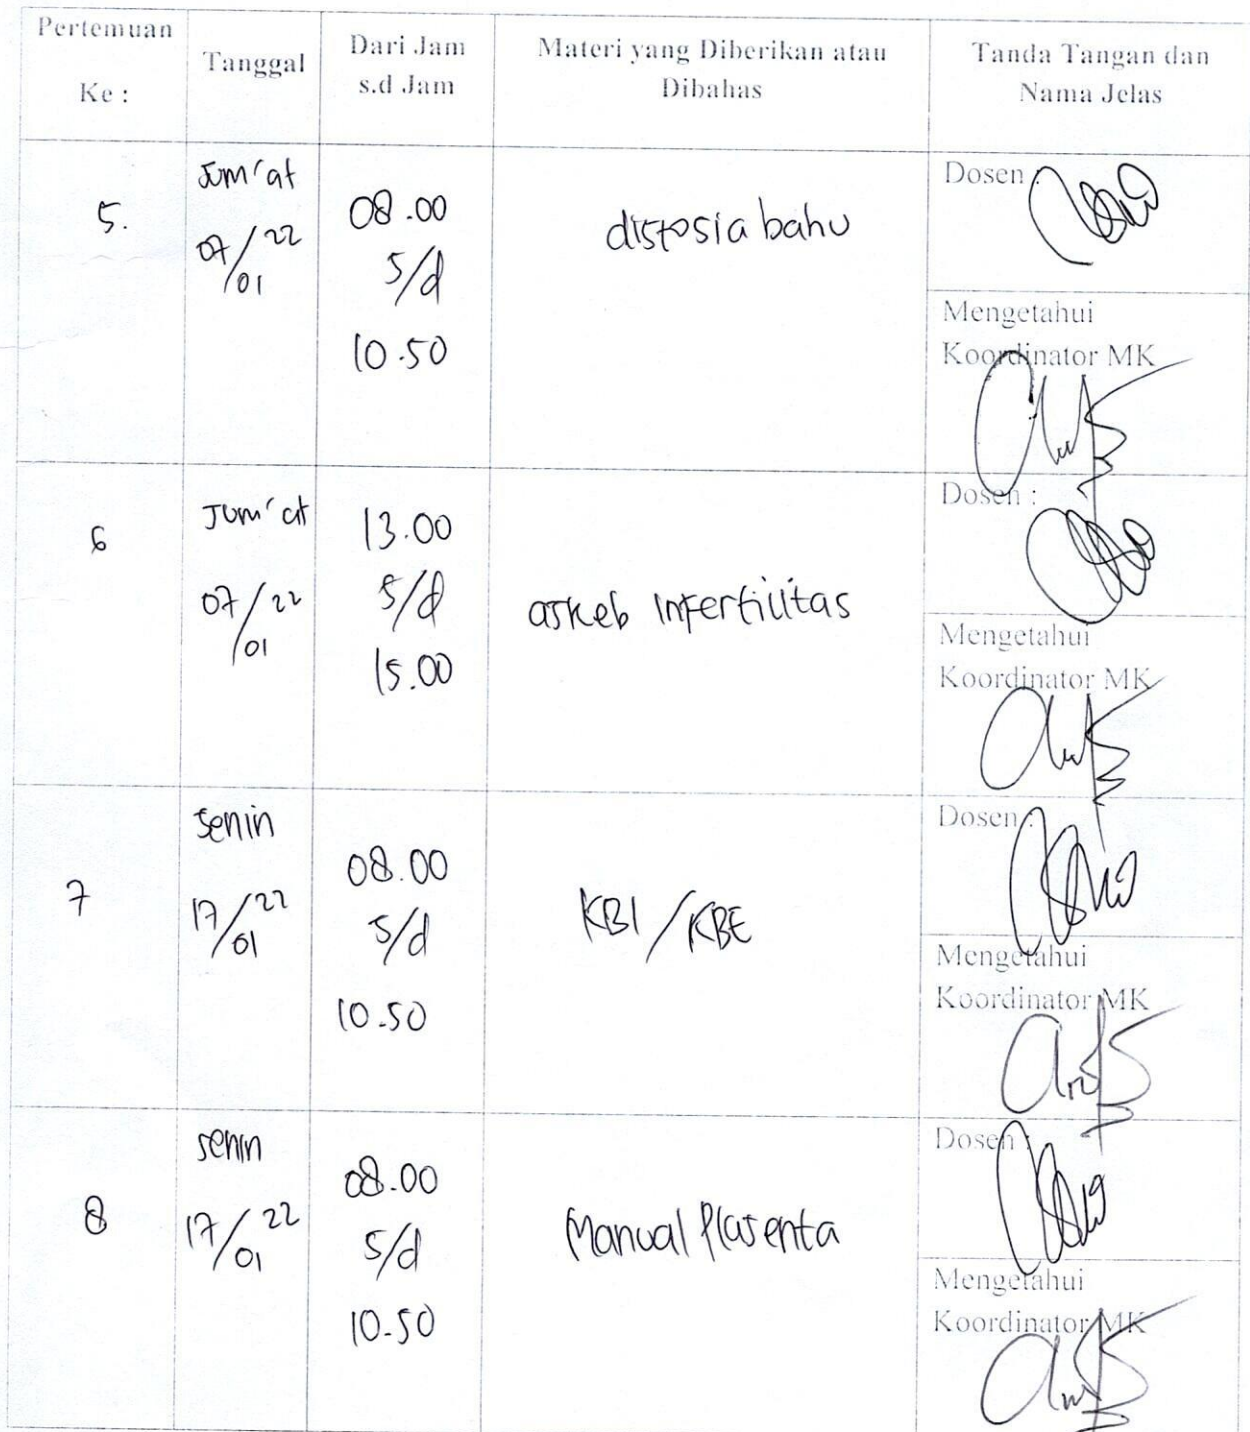 Pertemuan
Ke :
Tanggal
Dari Jam
s.d Jam
Materi yang Diberikan atau
Dibahas
Tanda Tangan dan
Nama Jelas
5.
Jum'at
07/01 22
08.00
s/d
10.50
distosia bahu
Dosen :
Mengetahui
Koordinator MK
6
Jum'at
07/01 22
13.00
s/d
15.00
askeb infertilitas
Dosen :
Mengetahui
Koordinator MK
7
Senin
17/01 22
08.00
s/d
10.50
KBI / KBE
Dosen :
Mengetahui
Koordinator MK
8
senin
17/01 22
08.00
s/d
10.50
Manual Plasenta
Dosen :
Mengetahui
Koordinator MK